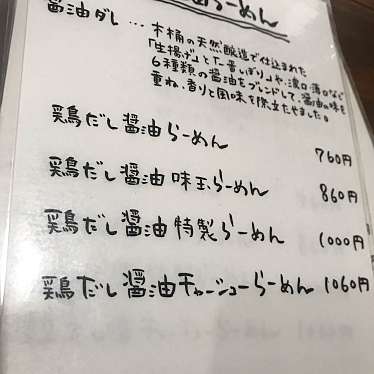 らーめん
醤油ダレ… 木桶の天然醸造で仕込まれた
「生揚げ」と「一番しぼり」や、濃口・薄口など
6種類の醤油をブレンドして、醤油の味を
重ね、香りと風味を際立たせました。
鶏だし醤油らーめん 760円
鶏だし醤油味玉らーめん 860円
鶏だし醤油特製らーめん 1000円
鶏だし醤油チャーシューらーめん 1060円